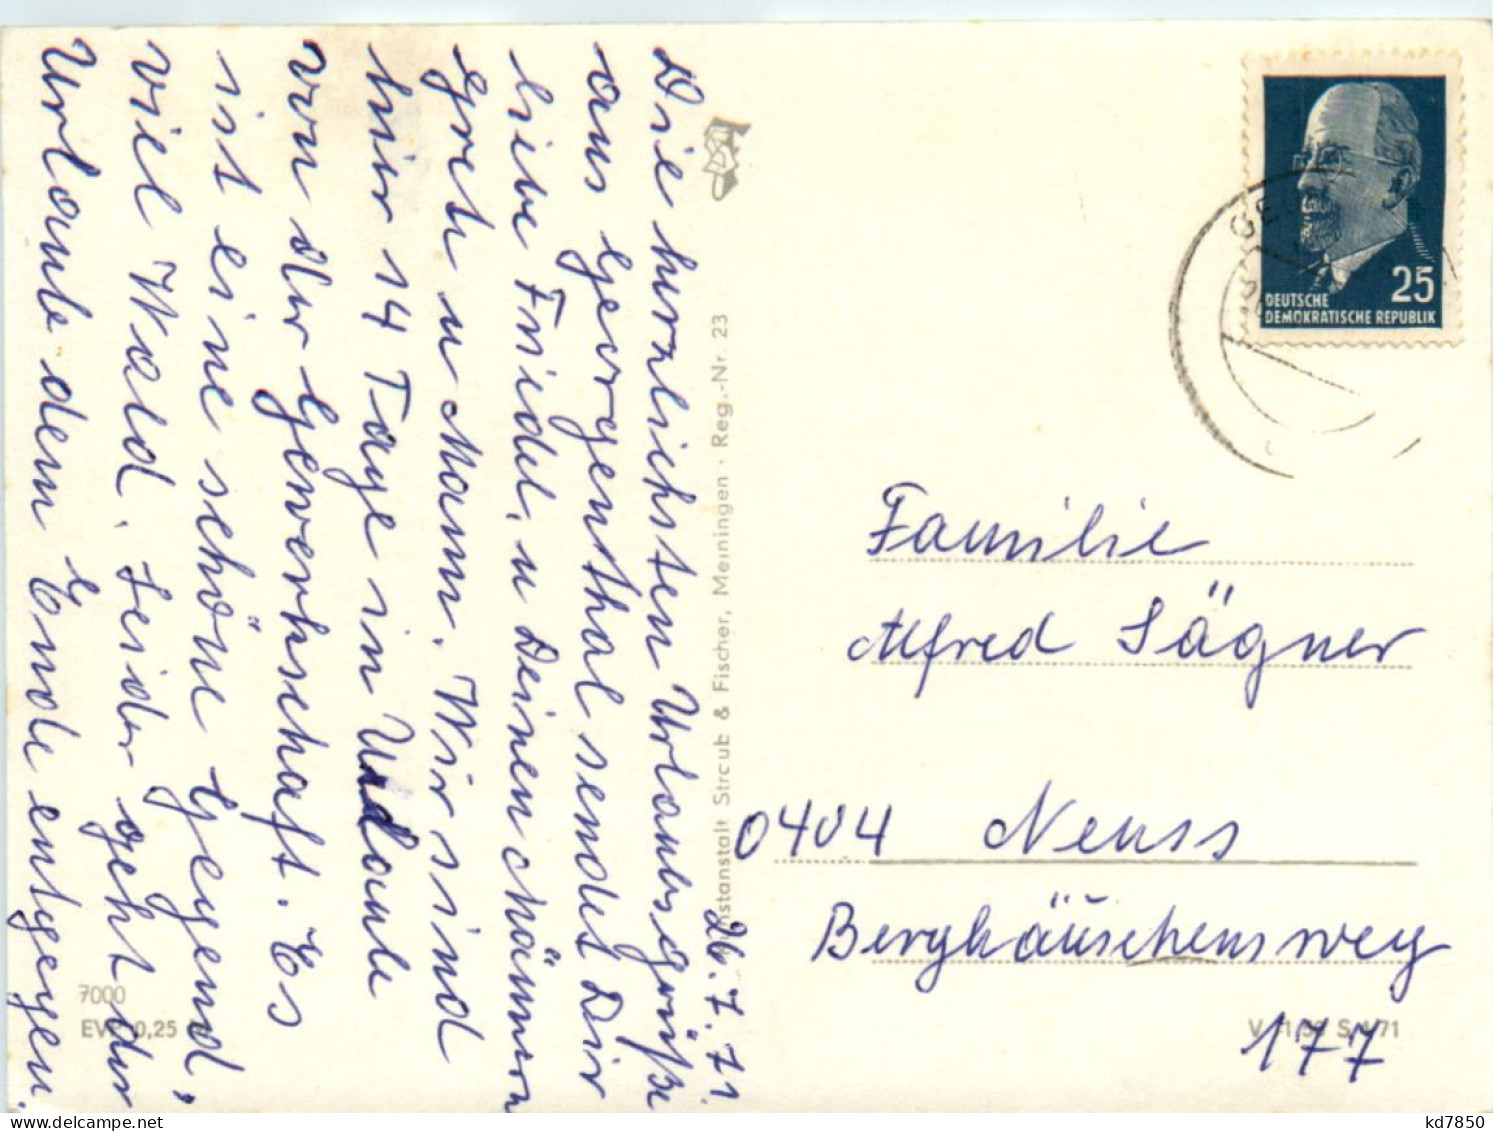 26.7.71.
Die herzlichsten Urlaubsgrüße
aus Georgenthal sendet Dir
liebe Friedel, u Deinen Männern
Grete u Mann. Wir sind
hier 14 Tage in Urlaub
von der Gewerkschaft. Es
ist eine schöne Gegend,
viel Wald. Leider geht der
Urlaub dem Ende entgegen.
7000
EVP 0,25
Reg.-Nr. 23
Straub & Fischer, Meiningen
DEUTSCHE
DEMOKRATISCHE REPUBLIK
25
Familie
Alfred Sägner
0404 Neuss
Berghäuschensweg
177
kd7850